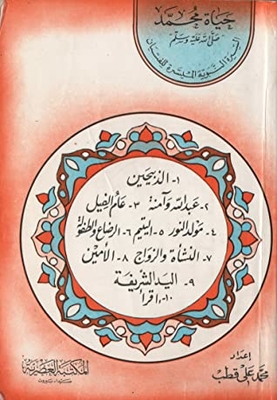 حياة محمد
صلى الله عليه وسلم
السيرة النبوية الميسرة للفتيان
١- الذبيحين
٢- عبد الله وآمنة ٣- عام الفيل
٤- مولد النور ٥- اليتيم ٦- الرضاع والطفولة
٧- النشأة والزواج ٨- الأمين
٩- اليد الشريفة
١٠- اقرأ
إعداد
محمد علي قطب
المكتبة العصرية
صيدا - بيروت